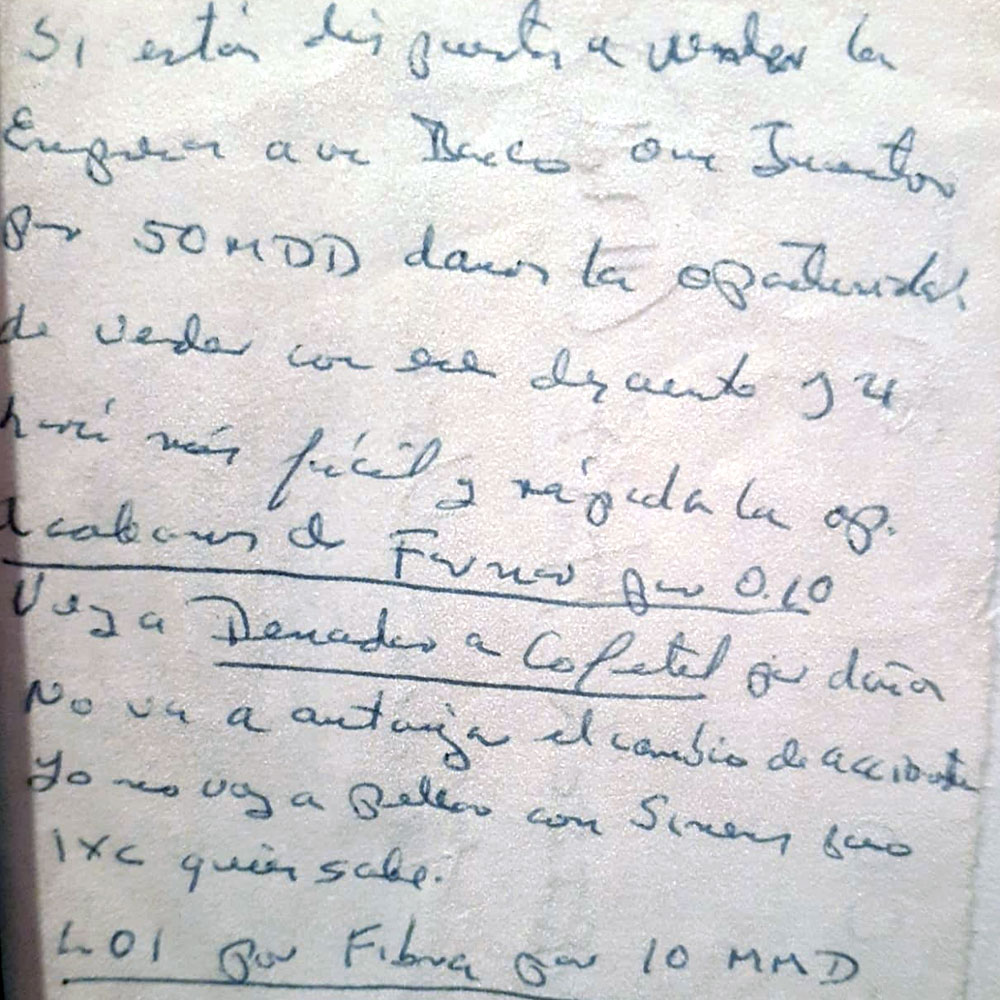 Si están dispuestos a vender la
Empresa a un Banco o un Inversor
por 50 MDD danos la oportunidad
de vender con ese descuento y
hará más fácil y rápida la op.
Acabamos de Firmar por 0.10
Voy a Demandar a Cofetel por daños
No va a autorizar el cambio de accionista
Yo no voy a pelear con pero
IXC quién sabe.
LOI por Fibra por 10 MMD